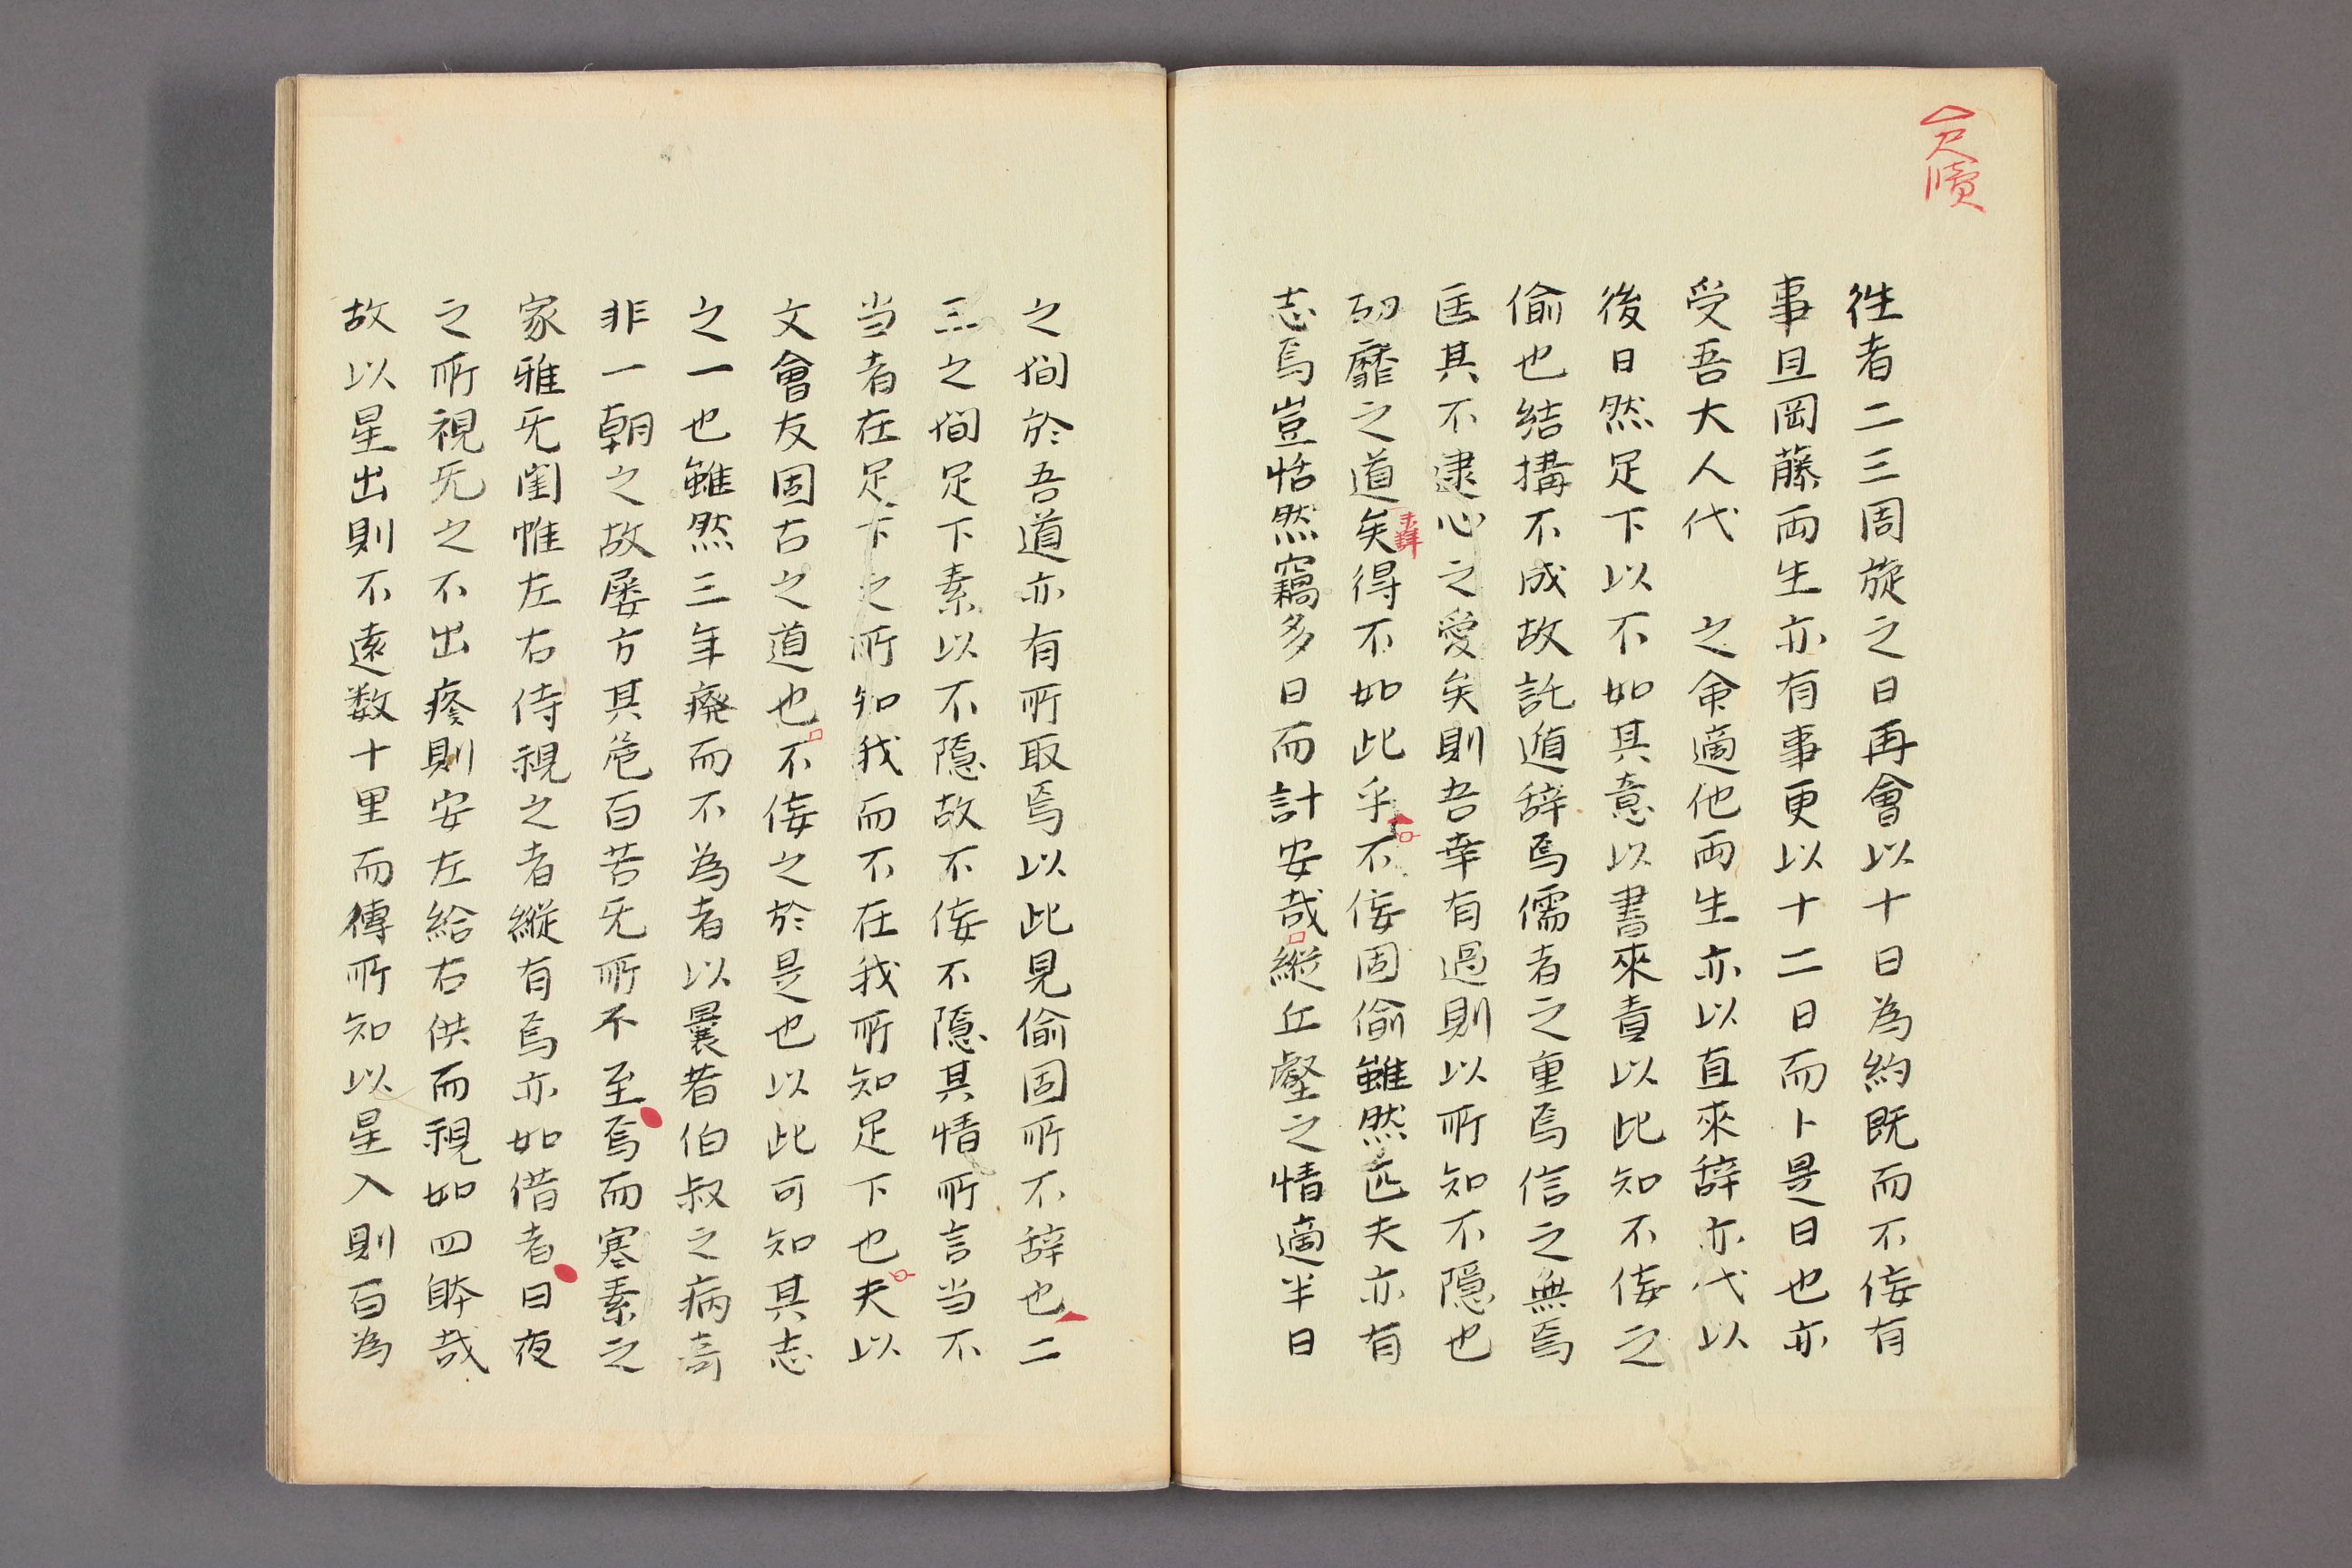 尺牘
徃者二三周旋之日再會以十日為約既而不侫有
事且岡藤両生亦有事更以十二日而卜是日也亦
受吾大人代　之命適他両生亦以直來辞亦代以
後日然足下以不如其意以書來責以此知不侫之
偷也結搆不成故託遁辞焉儒者之重焉信之無焉
匡其不逮心之愛矣則吾幸有過則以所知不隠也
切靡之道矣得不如此乎不侫固偷雖然匹夫亦有
志焉豈恬然竊多日而計安哉縦丘壑之情適半日
之间於吾道亦有所取焉以此見偷固所不辞也二
三之间足下素以不隠故不侫不隠其情所言当不
当者在足下之所知我而不在我所知足下也夫以
文會友固古之道也不侫之於是也以此可知其志
之一也雖然三年癈而不為者以曩昔伯叔之病奇
非一朝之故屡方其危百苦旡所不至焉而寒素之
家雅旡閨帷左右侍視之者縦有焉亦如借者日夜
之所視旡之不出疼則安左給右供而視如四躰哉
故以星出則不遠数十里而傳所知以星入則百為